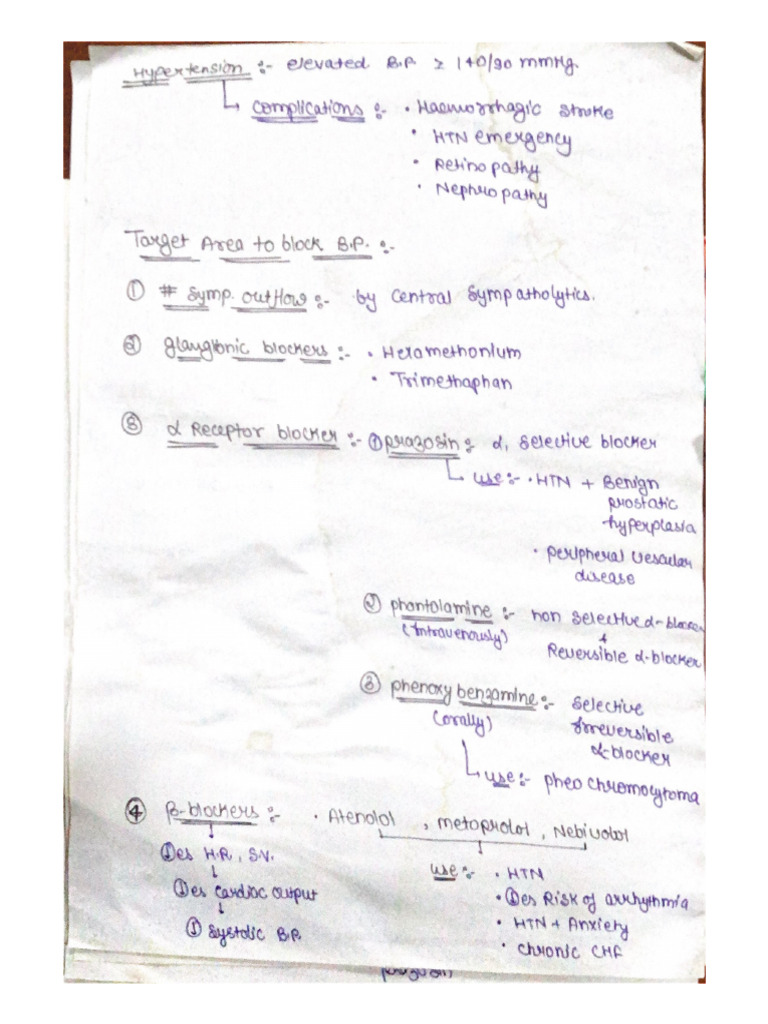 Hypertension :- elevated B.P. ≥ 140/90 mmHg.
↳ Complications :- • Haemorrhagic stroke
• HTN emergency
• Retinopathy
• Nephropathy
Target Area to block B.P. :-
① # Symp. outflow :- • by Central Sympatholytics.
② glauglionic blockers :- • Hexamethonium
• Trimethaphan
③ α Receptor blocker :- ① prazosin :- α, selective blocker
↳ use :- • HTN + Benign
prostatic
hyperplasia
• peripheral vescular
disease
② phantolamine :- non selective α-blocker
(Intravenously) +
Reversible α-blocker
③ phenoxy benzamine :- selective
(orally) irreversible
α-blocker
↳ use :- pheo chromocytoma
④ β-blockers :- • Atenolol, metoprolol, Nebivolol
↓
①es H.R, S.V. use :- • HTN
↓
①es cardiac output • ①es Risk of arrhythmia
↓ • HTN + Anxiety
① Systolic B.P. • chronic CHF